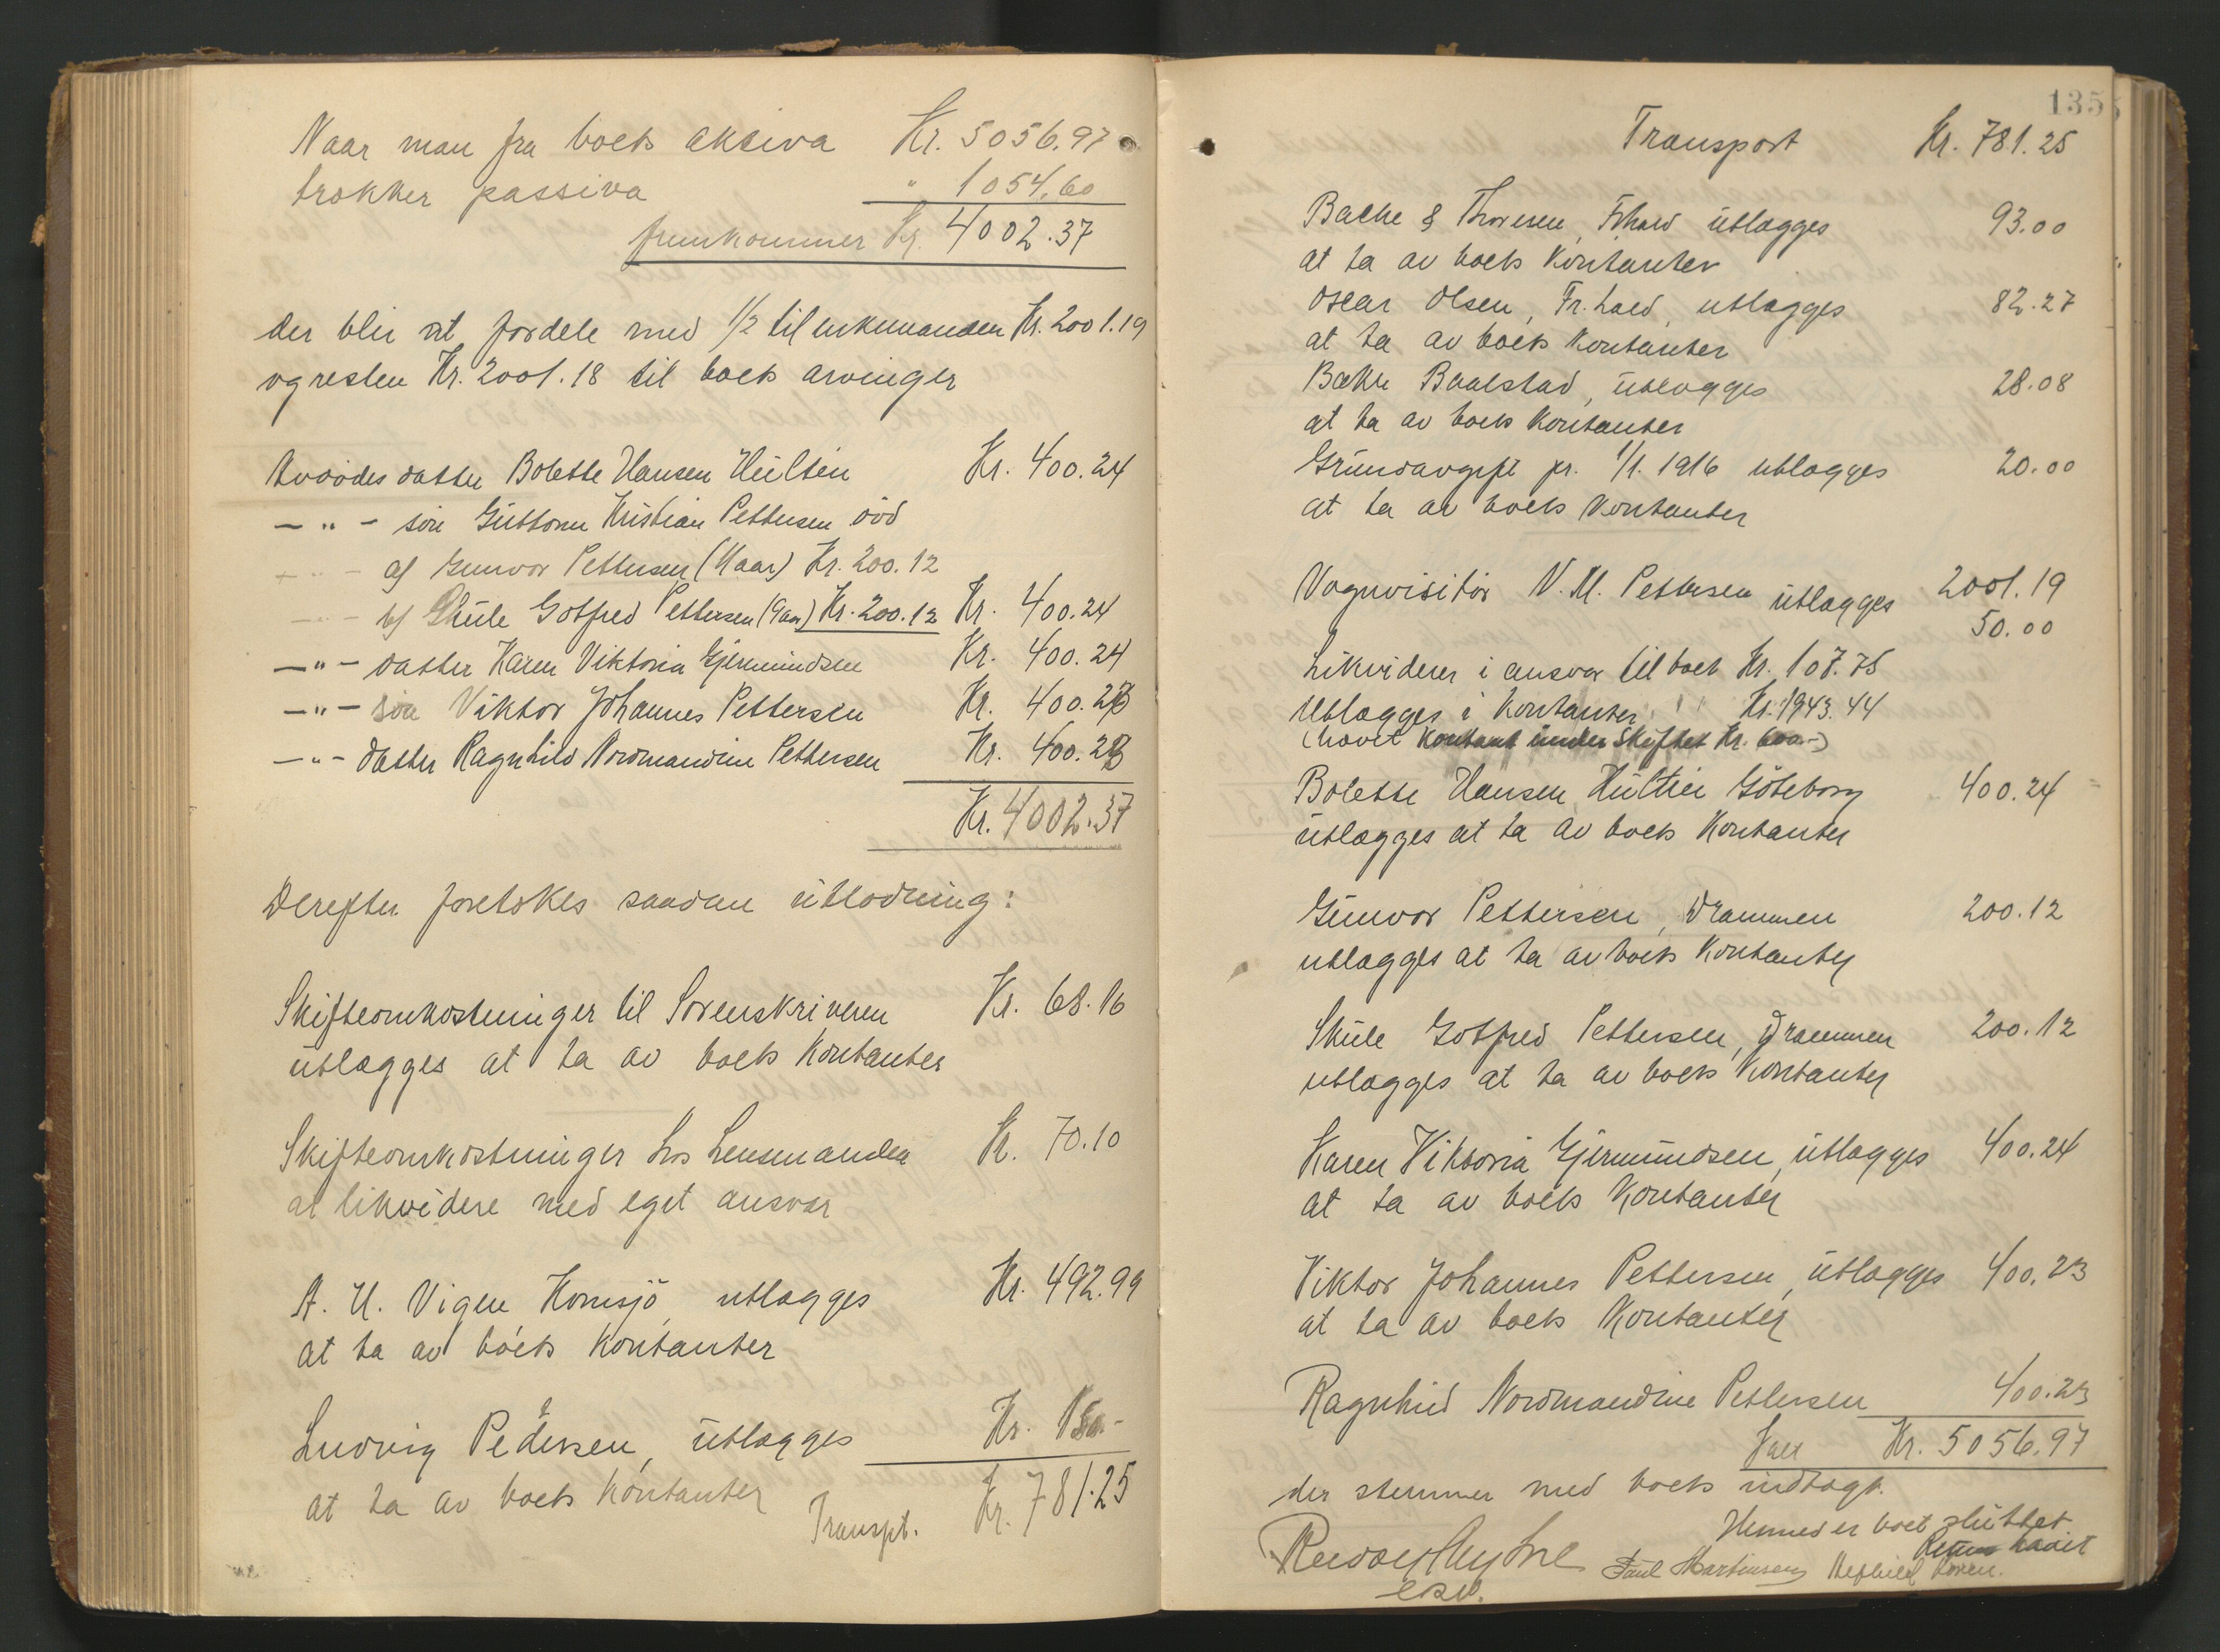 Naar man fra boets aktiva Kr. 5056.97
trækker passiva " 1054.60
fremkommer Kr. 4002.37
der blir at fordele med 1/2 til enkemanden Kr. 2001.19
og resten Kr. 2001.18 til boets arvinger
Avdødes datter Bolette Hansen Hultin Kr. 400.24
— " — søn Guttorm Kristian Pettersen død
— " — a/ Gunvor Pettersen ( aar) Kr. 200.12
— " — b/ Skule Gotfred Pettersen ( aar) Kr. 200.12 Kr. 400.24
— " — datter Karen Viktoria Gjermundsen Kr. 400.24
— " — søn Viktor Johannes Pettersen Kr. 400.23
— " — datter Ragnhild Nordmandine Pettersen Kr. 400.23
Kr. 4002.37
Derefter foretokes saadan utlodning:
Skifteomkostninger til Sorenskriveren Kr. 68.16
utlægges at ta av boets kontanter
Skifteomkostninger hos Lensmanden Kr. 70.10
at likvidere med eget ansvar
A. H. Vigen, Kornsjø, utlægges Kr. 492.99
at ta av boets kontanter
Ludvig Pedersen, utlægges Kr. 150.-
at ta av boets kontanter
Transpt. Kr. 781.25
135
Transport Kr. 781.25
Bache & Thoresen, Frhald utlægges 93.00
at ta av boets kontanter
Oscar Olsen, Fr.hald, utlægges 82.27
at ta av boets kontanter
Baalstad, utlægges 28.08
at ta av boets kontanter
Grundavgift pr. 1/1. 1916 utlægges 20.00
at ta av boets kontanter
Vognvisitør N. M. Pettersen utlægges 2001.19
50.00
Likviderer i ansvar til boet Kr. 107.75
Utlægges i kontanter " Kr. 1943.44
(havet kontant under skiftet Kr. 600.-)
Bolette Hansen Hultin Göteborg 400.24
utlægges at ta av boets kontanter
Gunvor Pettersen, Drammen 200.12
utlægges at ta av boets kontanter
Skule Gotfred Pettersen, Drammen 200.12
utlægges at ta av boets kontanter
Karen Viktoria Gjermundsen, utlægges 400.24
at ta av boets kontanter
Viktor Johannes Pettersen, utlægges 400.23
at ta av boets kontanter
Ragnhild Nordmandine Pettersen 400.23
Kr. 5056.97
der stemmer med boets indtægt.
Hermed er boet sluttet
Retten hævet
Paul Martinsen